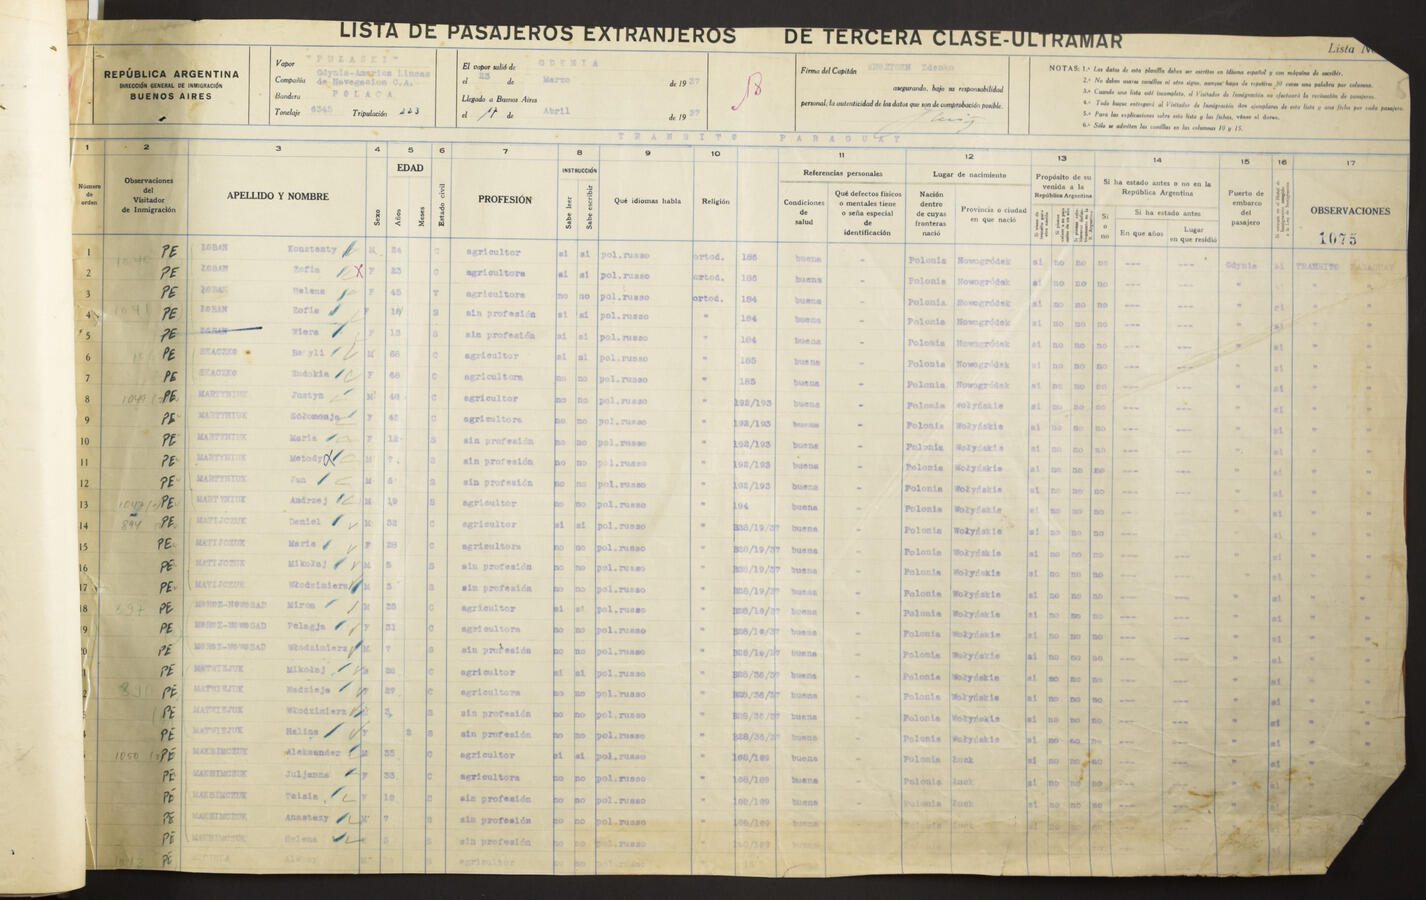 LISTA DE PASAJEROS EXTRANJEROS DE TERCERA CLASE-ULTRAMAR
Lista
REPÚBLICA ARGENTINA
DIRECCIÓN GENERAL DE INMIGRACIÓN
BUENOS AIRES
Vapor "PULASKI"
Compañía Gdynia-America Lineas de Navegacion C.A.
Bandera POLACA
Tonelaje 6345 Tripulación 223
El vapor salió de GDYNIA
el 23 de Marzo de 1937
Llegado a Buenos Aires
el de Abril de 1937
Firma del Capitán Zdenko
asegurando, bajo su responsabilidad
personal, la autenticidad de los datos que son de comprobación posible.
NOTAS: 1.ª Los datos de esta planilla deben ser escritos en idioma español y con máquina de escribir.
2.ª No deben usarse comillas ni otro signo, aunque haya de repetirse 30 veces una palabra por columna.
3.ª Cuando una lista esté incompleta, el Visitador de Inmigración no efectuará la revisación de pasajeros.
4.ª Todo buque entregará al Visitador de Inmigración dos ejemplares de esta lista y una ficha por cada pasajero.
5.ª Para las explicaciones sobre esta lista y las fichas, véase el dorso.
6.ª Sólo se admiten las comillas en las columnas 10 y 15.
TRANSITO PARAGUAY
1 2 3 4 5 6 7 8 9 10 11 12 13 14 15 16 17
Número de orden
Observaciones del Visitador de Inmigración
APELLIDO Y NOMBRE
Sexo
EDAD
Años
Meses
Estado civil
PROFESIÓN
INSTRUCCIÓN
Sabe leer
Sabe escribir
Qué idiomas habla
Religión
Referencias personales
Condiciones de salud
Qué defectos físicos o mentales tiene o seña especial de identificación
Lugar de nacimiento
Nación dentro de cuyas fronteras nació
Provincia o ciudad en que nació
Propósito de su venida a la República Argentina
Si ha estado antes o no en la República Argentina
Si o no
Si ha estado antes
En que años
Lugar en que residió
Puerto de embarco del pasajero
OBSERVACIONES
1075
1 PE ŁOBAN Konstanty M 24 C agricultor si si pol.ruso ortod. 186 buena - Polonia Nowogródek si no no no --- Gdynia si TRANSITO PARAGUAY
2 PE ŁOBAN Zofia F 23 C agricultora si si pol.ruso ortod. 186 buena - Polonia Nowogródek si no no no --- " si "
3 PE ŁOBAN Helena F 45 agricultora no no pol.ruso ortod. 184 buena - Polonia Nowogródek si no no no --- " si "
4 PE ŁOBAN Zofia F S sin profesión si si pol.ruso " 184 buena - Polonia Nowogródek si no no no --- " si "
5 PE ŁOBAN Wiera F 13 S sin profesión si si pol.ruso " 184 buena - Polonia Nowogródek si no no no --- " si "
6 PE SKACZKO M 68 C agricultor si si pol.ruso " 185 buena - Polonia Nowogródek si no no no --- " si "
7 PE SKACZKO Eudokia F 68 C agricultora no no pol.ruso " 185 buena - Polonia Nowogródek si no no no --- " si "
8 PE MARTYNIUK Justyn M 48 C agricultor si si pol.ruso " 192/193 buena - Polonia Wołyńskie si no no no --- " si "
9 PE MARTYNIUK F 45 C agricultora no no pol.ruso " 192/193 buena - Polonia Wołyńskie si no no no --- " si "
10 PE MARTYNIUK Maria F 12 S sin profesión no no pol.ruso " 192/193 buena - Polonia Wołyńskie si no no no --- " si "
11 PE MARTYNIUK Metody M 7 S sin profesión no no pol.ruso " 192/193 buena - Polonia Wołyńskie si no no no --- " si "
12 PE MARTYNIUK Jan M S sin profesión no no pol.ruso " 192/193 buena - Polonia Wołyńskie si no no no --- " si "
13 PE MARTYNIUK Andrzej M 19 S agricultor no no pol.ruso " 194 buena - Polonia Wołyńskie si no no no --- " si "
14 894 PE MATIJCZUK Daniel M 32 C agricultor si si pol.ruso " B28/19/37 buena - Polonia Wołyńskie si no no no --- " si "
15 PE MATIJCZUK Maria F 28 C agricultora no no pol.ruso " B28/19/37 buena - Polonia Wołyńskie si no no no --- " si "
16 PE MATIJCZUK Mikołaj M 5 S sin profesión no no pol.ruso " B28/19/37 buena - Polonia Wołyńskie si no no no --- " si "
17 PE MATIJCZUK Włodzimierz M 3 S sin profesión no no pol.ruso " B28/19/37 buena - Polonia Wołyńskie si no no no --- " si "
18 PE MOROZ-NOWOSAD Miron M C agricultor si si pol.ruso " buena - Polonia Wołyńskie si no no no --- " si "
19 PE MOROZ-NOWOSAD Pelagja F 31 C agricultora no no pol.ruso " buena - Polonia Wołyńskie si no no no --- " si "
PE MOROZ-NOWOSAD Włodzimierz M 7 S sin profesión no no pol.ruso " buena - Polonia Wołyńskie si no no no --- " si "
PE MATWIEJUK Mikołaj M C agricultor si si pol.ruso " B28/36/37 buena - Polonia Wołyńskie si no no no --- " si "
PE MATWIEJUK Nadzieja F 27 C agricultora no no pol.ruso " B28/36/37 buena - Polonia Wołyńskie si no no no --- " si "
PE MATWIEJUK Włodzimierz M 3 S sin profesión no no pol.ruso " B28/36/37 buena - Polonia Wołyńskie si no no no --- " si "
PE MATWIEJUK Halina F S sin profesión no no pol.ruso " B28/36/37 buena - Polonia Wołyńskie si no no no --- " si "
1050 PE MAKSIMCZUK Aleksander M 35 C agricultor si si pol.ruso " 168/169 buena - Polonia Łuck si no no no --- " si "
PE MAKSIMCZUK Juljanna F 33 C agricultora no no pol.ruso " 168/169 buena - Polonia Łuck si no no no --- " si "
PE MAKSIMCZUK Taisia F 10 S sin profesión no no pol.ruso " 168/169 buena - Polonia Łuck si no no no --- " si "
PE MAKSIMCZUK Anastazy M 7 S sin profesión no no pol.ruso " 168/169 buena - Polonia Łuck si no no no --- " si "
PE MAKSIMCZUK Helena S sin profesión no no pol.ruso " buena
PE agricultor